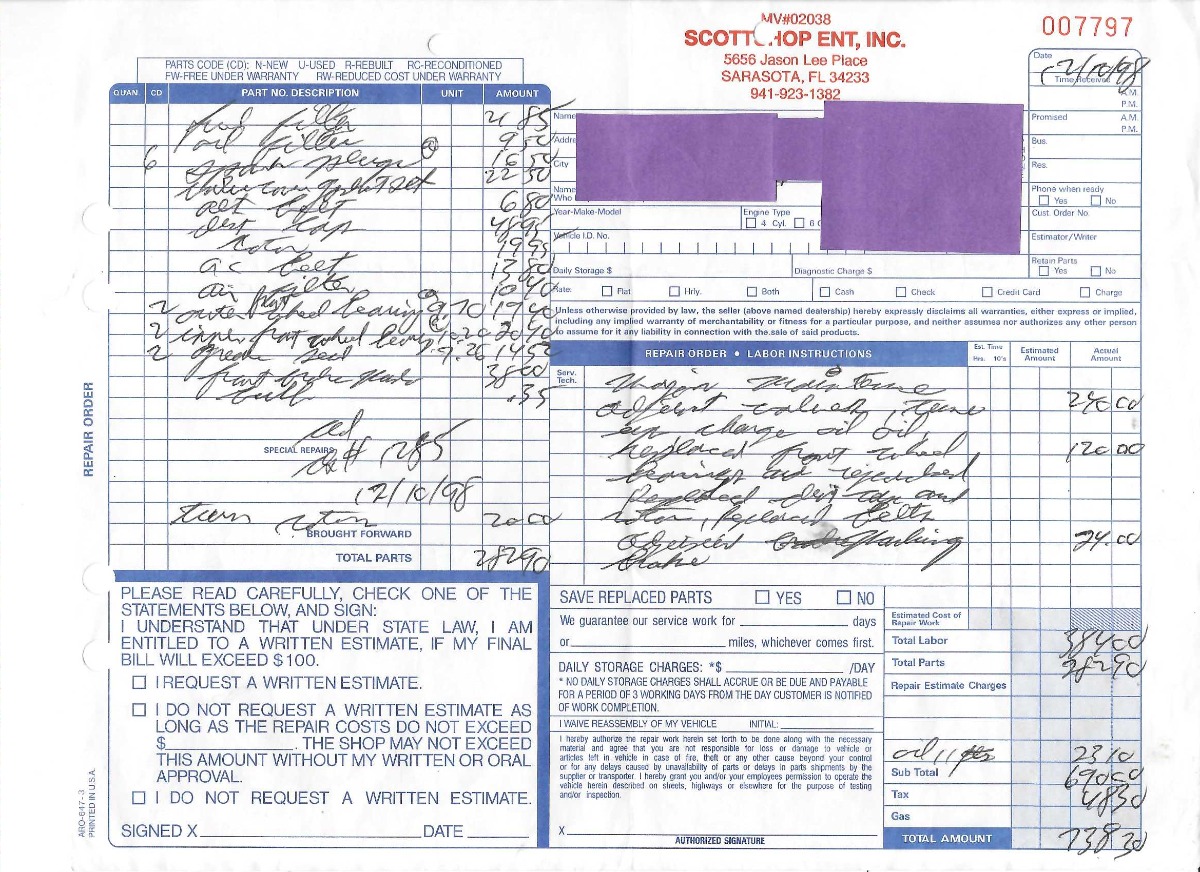 MV#02038
SCOTT HOP ENT, INC.
5656 Jason Lee Place
SARASOTA, FL 34233
941-923-1382
007797
PARTS CODE (CD): N-NEW U-USED R-REBUILT RC-RECONDITIONED
FW-FREE UNDER WARRANTY RW-REDUCED COST UNDER WARRANTY
QUAN CD PART NO. DESCRIPTION UNIT AMOUNT
fuel filter 21 85
oil filter 9 50
6 spark plugs @ 16 50
valve cover gasket set 22 50
alt belt 6 80
dist cap 48 95
rotor 19 95
ac belt 13 80
air filter 10 40
2 outer front wheel bearing @ 9.70 19 40
2 inner front wheel bearing @ 10.20 20 40
2 grease seal 7.26 14 52
front brake pads 38 00
bulb .35
pd
ck# 1285
SPECIAL REPAIRS
12/10/98
turn rotors 20 00
BROUGHT FORWARD
TOTAL PARTS 282 90
REPAIR ORDER
ARO-647-3
PRINTED IN U.S.A.
Date 12/10/98
Time Received A.M.
P.M.
Promised A.M.
P.M.
Bus.
Res.
Phone when ready
Yes No
Cust. Order No.
Estimator/Writer
Retain Parts
Yes No
Name
Addre
City
Name
Who
Year-Make-Model Engine Type
4 Cyl. 6 C
Vehicle I.D. No.
Daily Storage $ Diagnostic Charge $
Rate: Flat Hrly. Both Cash Check Credit Card Charge
Unless otherwise provided by law, the seller (above named dealership) hereby expressly disclaims all warranties, either express or implied,
including any implied warranty of merchantability or fitness for a particular purpose, and neither assumes nor authorizes any other person
to assume for it any liability in connection with the sale of said products.
REPAIR ORDER • LABOR INSTRUCTIONS Est. Time Hrs. 10's Estimated Amount Actual Amount
Serv. Tech.
Major Maintenance
adjust valves, tune 240 00
up change oil oil
replaced front wheel 120 00
bearings and repacked
Replaced dist cap and
rotor, Replaced belts
parking 24.00
Brake
PLEASE READ CAREFULLY, CHECK ONE OF THE
STATEMENTS BELOW, AND SIGN:
I UNDERSTAND THAT UNDER STATE LAW, I AM
ENTITLED TO A WRITTEN ESTIMATE, IF MY FINAL
BILL WILL EXCEED $100.
I REQUEST A WRITTEN ESTIMATE.
I DO NOT REQUEST A WRITTEN ESTIMATE AS
LONG AS THE REPAIR COSTS DO NOT EXCEED
$ . THE SHOP MAY NOT EXCEED
THIS AMOUNT WITHOUT MY WRITTEN OR ORAL
APPROVAL.
I DO NOT REQUEST A WRITTEN ESTIMATE.
SIGNED X DATE
SAVE REPLACED PARTS YES NO
We guarantee our service work for days
or miles, whichever comes first.
DAILY STORAGE CHARGES: *$ /DAY
* NO DAILY STORAGE CHARGES SHALL ACCRUE OR BE DUE AND PAYABLE
FOR A PERIOD OF 3 WORKING DAYS FROM THE DAY CUSTOMER IS NOTIFIED
OF WORK COMPLETION.
I WAIVE REASSEMBLY OF MY VEHICLE INITIAL:
I hereby authorize the repair work herein set forth to be done along with the necessary
material and agree that you are not responsible for loss or damage to vehicle or
articles left in vehicle in case of fire, theft or any other cause beyond your control
or for any delays caused by unavailability of parts or delays in parts shipments by the
supplier or transporter. I hereby grant you and/or your employees permission to operate the
vehicle herein described on streets, highways or elsewhere for the purpose of testing
and/or inspection.
X
AUTHORIZED SIGNATURE
Estimated Cost of
Repair Work
Total Labor 384 00
Total Parts 282 90
Repair Estimate Charges
oil 11 qts 23 10
Sub Total 690 00
Tax 48 30
Gas
TOTAL AMOUNT 738 30